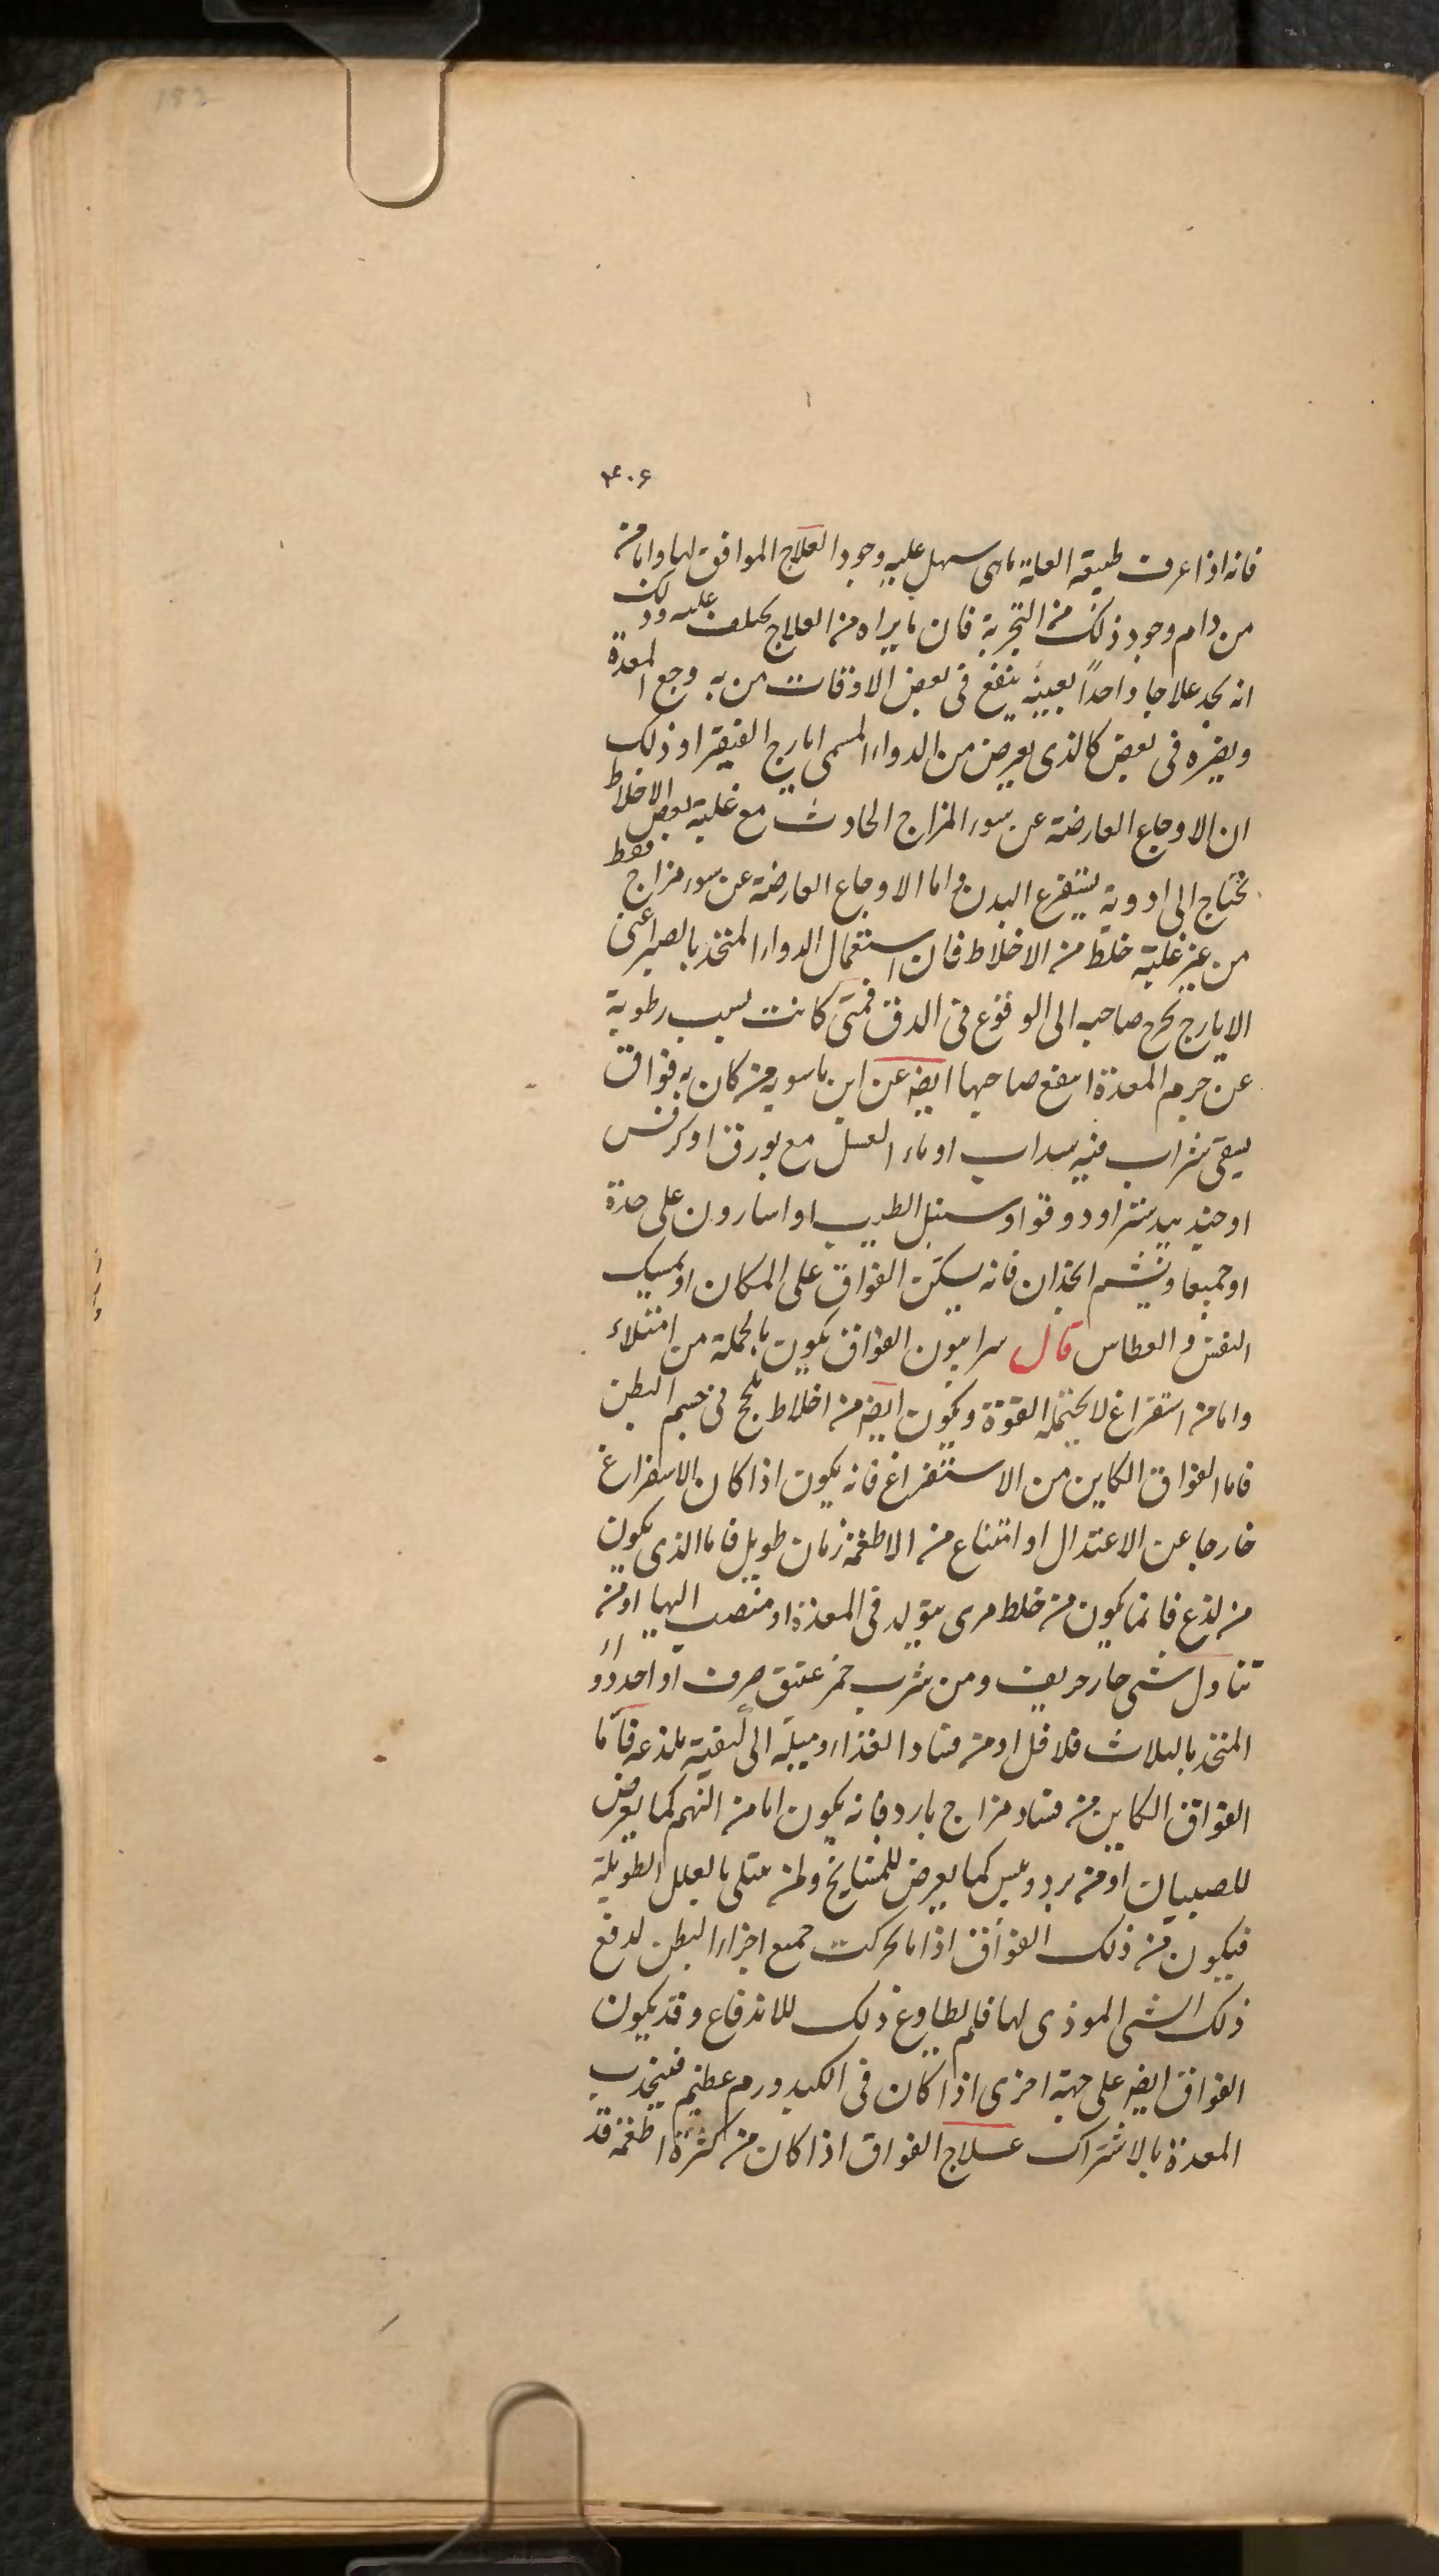 152
۴۰۶
فانه اذا عرف طبيعة العلة ماهى سهل عليه وجود العلاج الموافق لها واما من
من دام وجود ذلك من التجربة فان مايراه من العلاج يختلف عليه وذلك
انه يجد علاجا واحداً بعينه ينفع فى بعض الاوقات من به وجع المعدة
ويضره فى بعض كالذى يعرض من الدواء المسمى ايارج الفيقرا وذلك
ان الاوجاع العارضة عن سوء المزاج الحادث مع غلبة بعض الاخلاط
تحتاج الى ادوية يستفرغ البدن واما الاوجاع العارضة عن سوء مزاج فقط
من غير غلبة خلط من الاخلاط فان استعمال الدواء المتخذ بالصبر اعنى
الايارج يخرج صاحبه الى الوقوع فى الدق فمتى كانت بسبب رطوبة
عن جرم المعدة انتفع صاحبها ايضه عن ابن ماسويه من كان به فواق
يسقى شراب فيه سداب او ماء العسل مع بورق او كرفس
او جندبيدستر او دوقو او سنبل الطيب او اسارون على حدة
او جميعا ويشم انجذان فانه يسكن الفواق على المكان او يمسك
النفس والعطاس قال سرابيون الفواق يكون بالجملة من امتلاء
واما من استفراغ لا يحتمله القوة ويكون ايضه من اخلاط تلحج فى جسم البطن
فاما الفواق الكاين من الاستفراغ فانه يكون اذا كان الاستفراغ
خارجا عن الاعتدال او امتناع من الاطعمة زمان طويل فاما الذى يكون
من لذع فانما يكون من خلط مرى يتولد فى المعدة او منصب اليها او من
تناول شى حار حريف ومن شرب خمر عتيق صرف او احد دواء
المتخذ بالثلاث فلافل او من فساد الغذاء وميله الى كيفية تلذعه فاما
الفواق الكاين من فساد مزاج بارد فانه يكون اما من النهم كما يعرض
للصبيان او من برد ويبس كما يعرض للمشايخ ولمن يبتلى بالعلل الطويلة
فيكون من ذلك الفواق اذا ما تحركت جميع اجزاء البطن لدفع
ذلك الشى الموذى لها فلم يطاوع ذلك للاندفاع وقد يكون
الفواق ايضه على جهة اخرى اذا كان فى الكبد ورم عظيم فينجذب
المعدة بالاشتراك علاج الفواق اذا كان من كثرة اطعمة قد